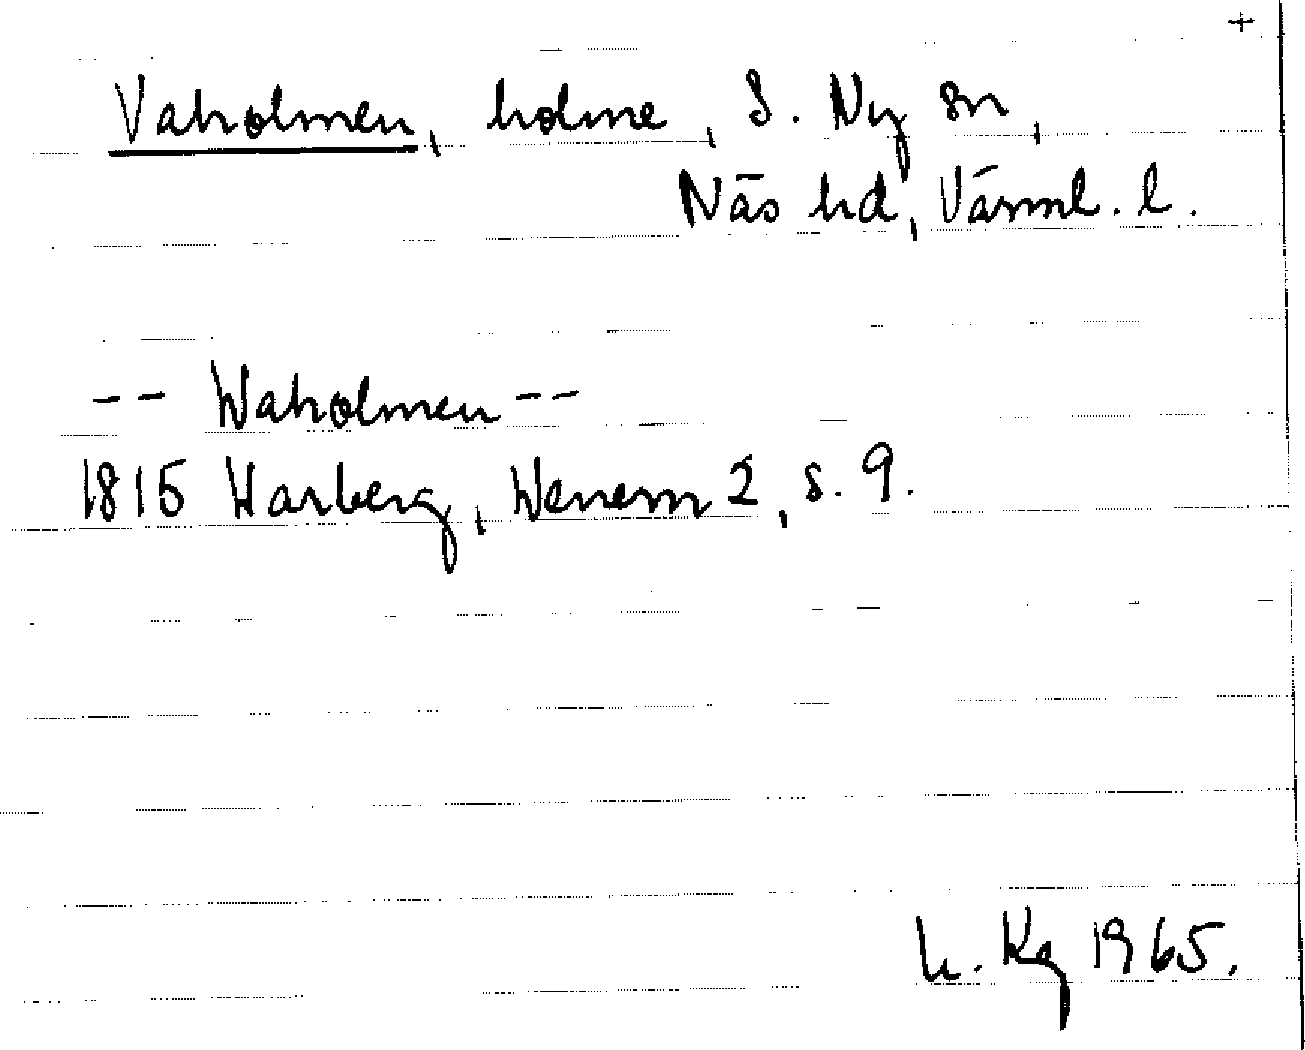 +
Vaholmen, holme, S. Ny sn,
Näs hd, Värml. l.
-- Waholmen --
1815 Warberg, Wenern 2, s. 9.
h. Kg 1965.